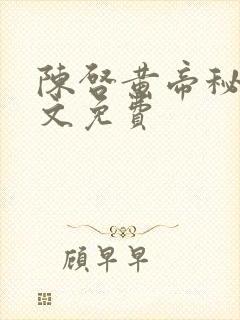 陳啓黄帝秘
文免費
顧早早